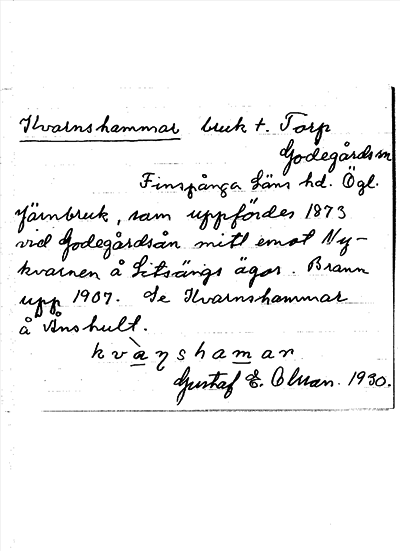 Kvarnshammar bruk t. Torp
Godegårds sn
Finspånga läns hd. Ögl.
Järnbruk, som uppfördes 1873
vid Godegårdsån mitt emot Ny-
kvarnen å Sitsängs ägor. Brann
upp 1907. Se Kvarnshammar
å Ånshult.
kvàɳshamar
Gustaf E. Olsson. 1930.